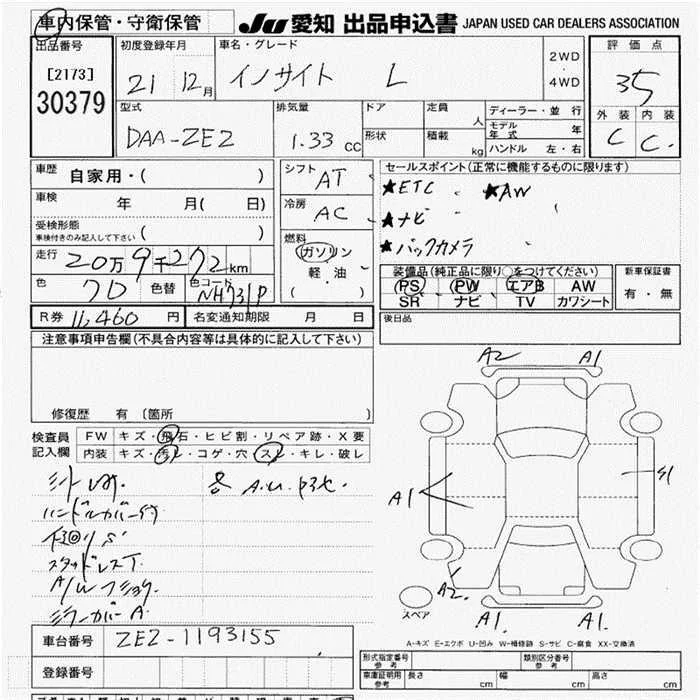 車内保管・守衛保管
JU 愛知 出品申込書 JAPAN USED CAR DEALERS ASSOCIATION
出品番号 初度登録年月 車名・グレード 評価点
[2173] 21 12月 インサイト L 2WD・4WD 35
30379
型式 排気量 ドア 定員 人 ディーラー・並行 外装 内装
DAA-ZE2 1.33 CC 形状 積載 kg モデル年式 年 C C
ハンドル 左・右
車歴 自家用・( )
シフト AT
セールスポイント(正常に機能するものに限ります)
★ETC ★AW
車検 年 月( 日)
冷房 AC
★ナビ
受検形態 ( )
車検付きのみ記入して下さい
★バックカメラ
走行 20万9千272km
燃料 ガソリン
軽油
( )
装備品(純正品に限り○をつけてください) 新車保証書
色 色替 色コード NH731P
PS PW エアB AW 有・無
SR ナビ TV カワシート
R券 11,460 円 名変通知期限 月 日
後日品
注意事項申告欄(不具合内容等は具体的に記入して下さい)
修復歴 有 〔箇所 〕
検査員記入欄 FW キズ・飛石・ヒビ割・リペア跡・X要
内装 キズ・汚レ・コゲ・穴・スレ・キレ・破レ
ハンドルカバー付
スタッドレスT
ミラーカバーA
A2 A1
A1 S1
A2 A1 A1
スペア
A-キズ E-エクボ U-凹み W-補修跡 S-サビ C-腐食 XX-交換済
車台番号 ZE2-1193155
登録番号
形式指定番号 参考 類別区分番号 参考
車庫証明用 参考 長さ cm 幅 cm 高さ cm